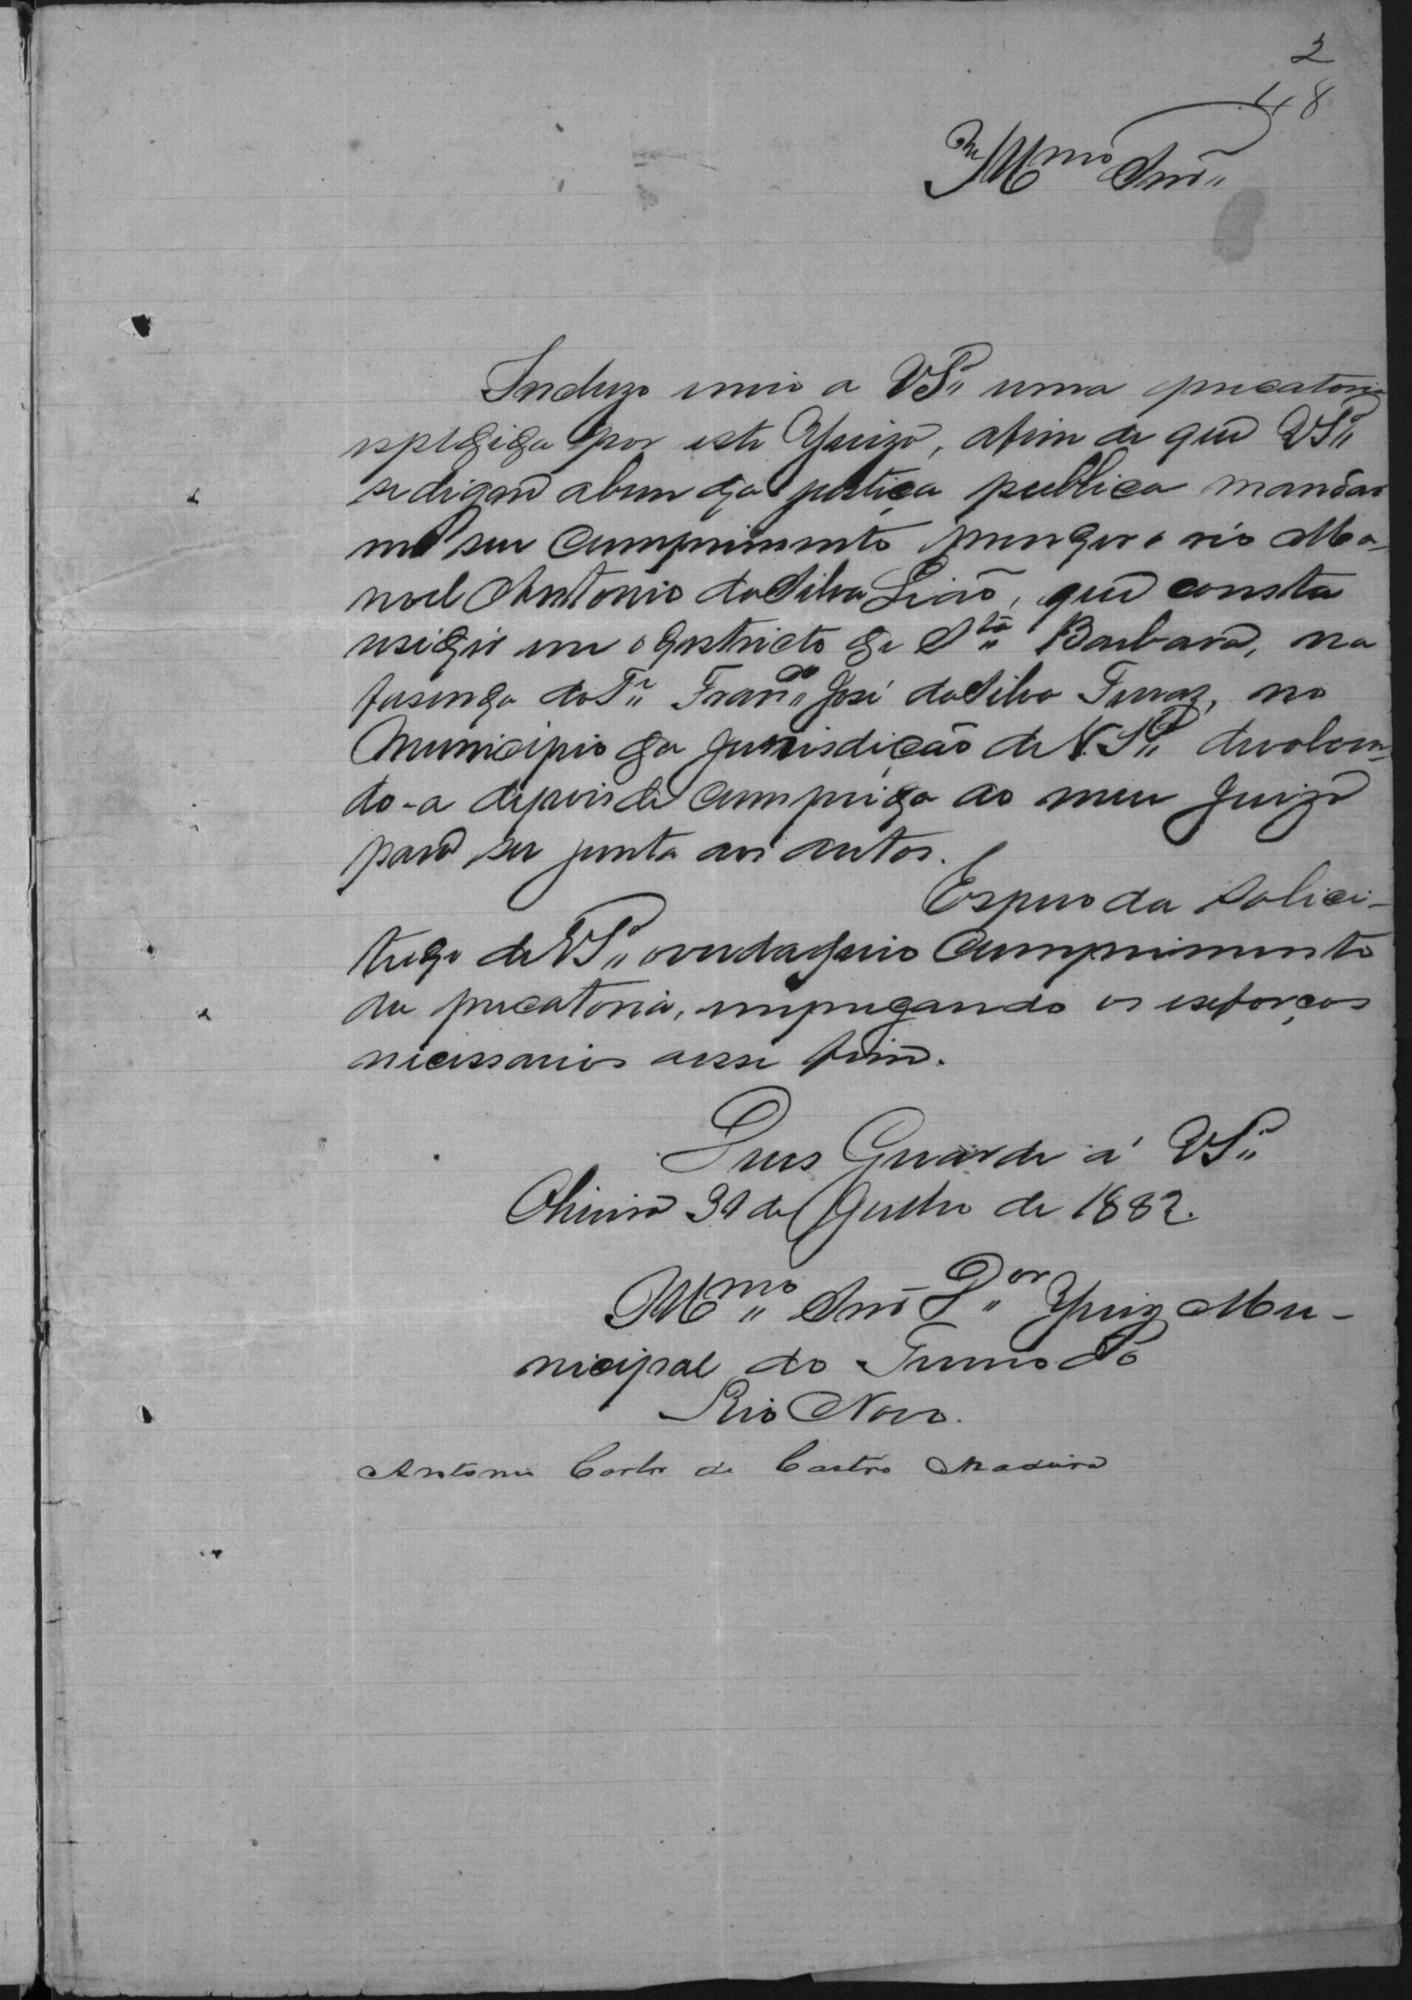 2
48
Illmo Snr
Incluzo invio a VSa uma precatoria
expedida por este Juizo, afim de que VSa
se digne abem da justiça publica mandar
no seu cumprimento prender o réo Ma-
noel Antonio da Silva Leão, que consta
residir em o destricto de Sta Barbara, na
fasenda do Te Franco José da Silva Ferraz, no
Municipio da jurisdicção de V.Sa devolven-
do-a depois de cumprida ao meu Juizo
para ser junta aos autos.
Espero da solici-
tude de VSa o verdadeiro cumprimento
da precatoria, impregando os esforços
necessarios a esse fim.
Deus Guarde á VSa
31 de Julho de 1882.
Illmo Snr Dor Juiz Mu-
nicipal do Termo do
Rio Novo.
Antonio Carlos de Castro Madeira